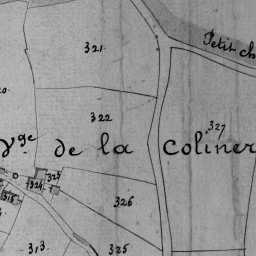 Petit ch
321
322
327
Vge de la Coliner
325
324
326
313
325